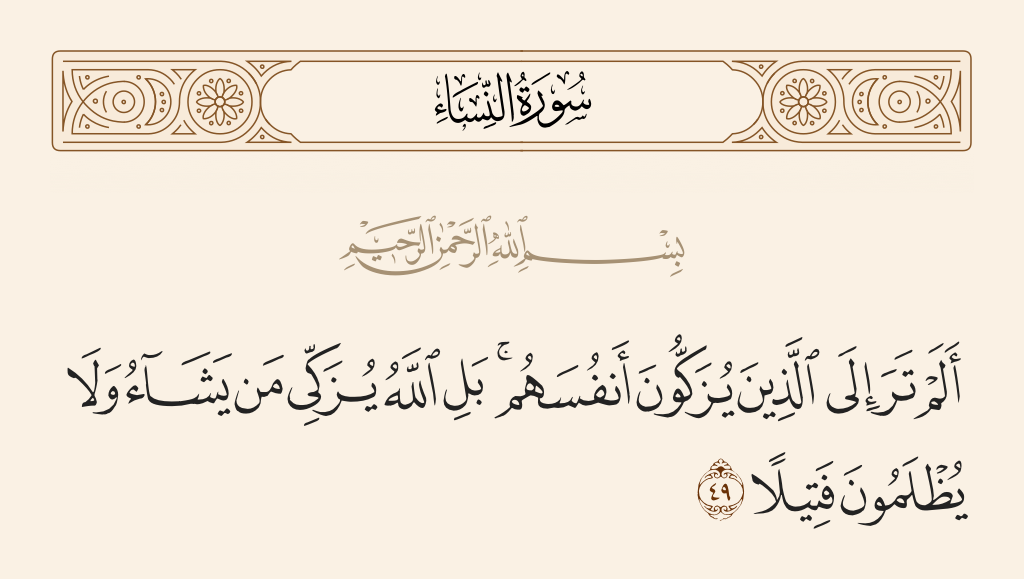 سُورَةُ النِّسَاءِ
بِسْمِ ٱللَّهِ ٱلرَّحْمَٰنِ ٱلرَّحِيمِ
أَلَمْ تَرَ إِلَى ٱلَّذِينَ يُزَكُّونَ أَنفُسَهُم ۚ بَلِ ٱللَّهُ يُزَكِّى مَن يَشَآءُ وَلَا
يُظْلَمُونَ فَتِيلًا ٤٩